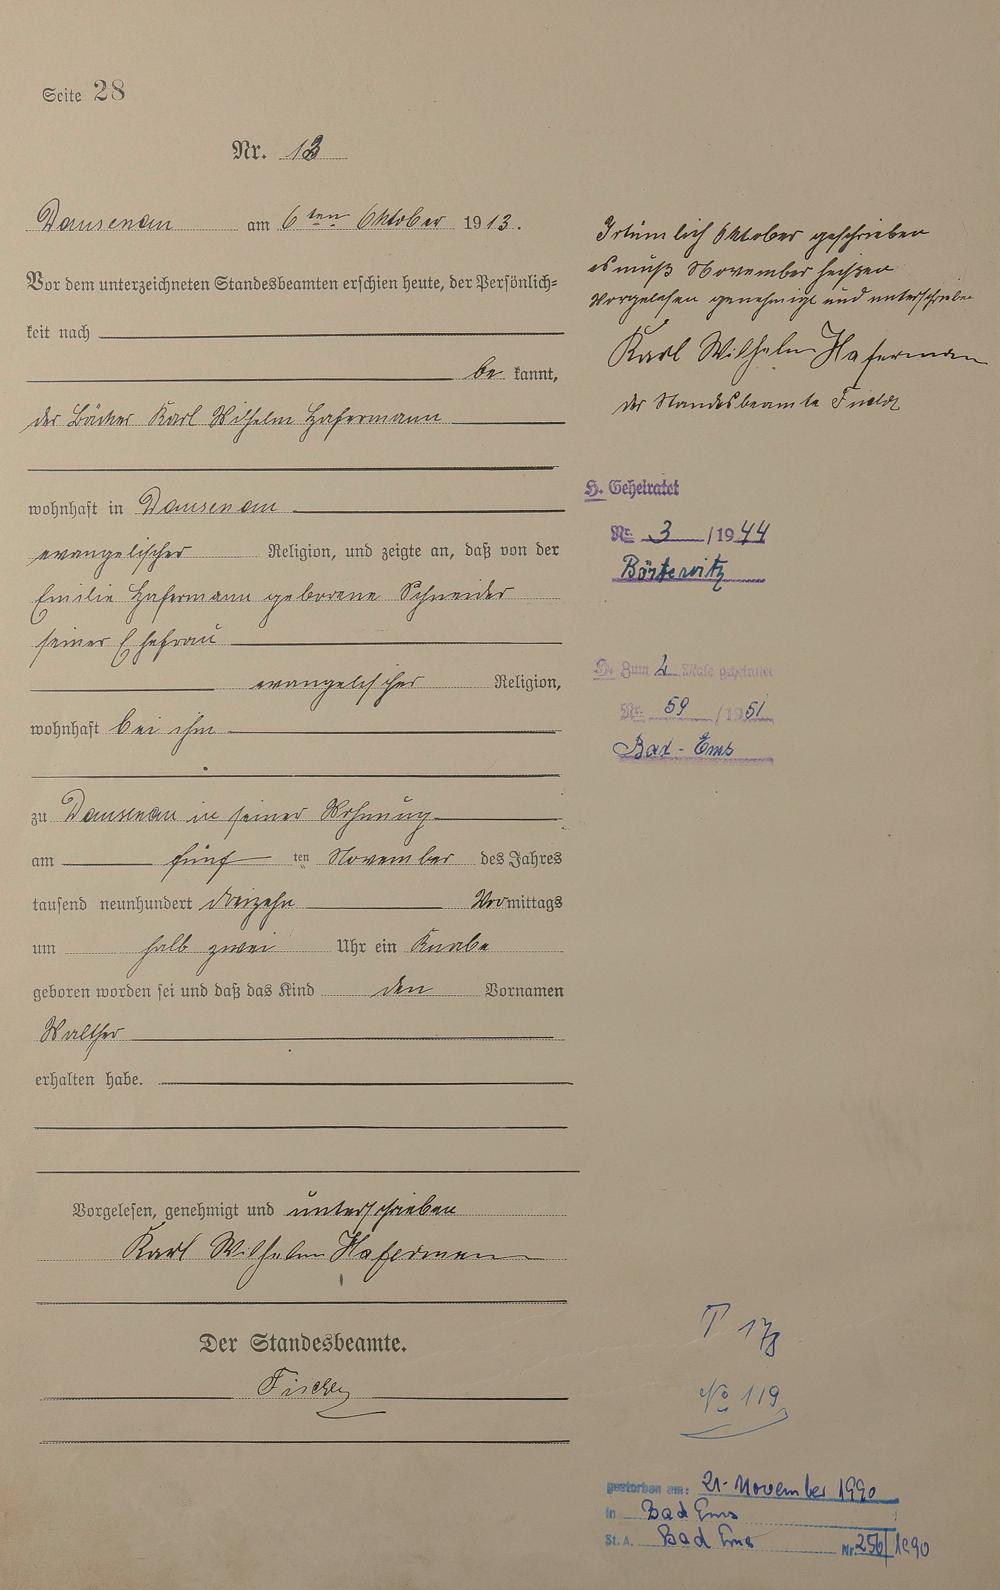 Seite 28
Nr. 13
Dausenau am 6ten Oktober 1913.
Vor dem unterzeichneten Standesbeamten erschien heute, der Persönlich-
keit nach
be kannt,
der Bäcker Karl Wilhelm Hafermann
wohnhaft in Dausenau
evangelischer Religion, und zeigte an, daß von der
Emilie Hafermann geborene Schneider
seiner Ehefrau
evangelischer Religion,
wohnhaft bei ihm
zu Dausenau in seiner Wohnung
am fünf ten November des Jahres
tausend neunhundert dreizehn Vormittags
um halb zwei Uhr ein Knabe
geboren worden sei und daß das Kind den Vornamen
Walther
erhalten habe.
Vorgelesen, genehmigt und unterschrieben
Karl Wilhelm Hafermann
Der Standesbeamte.
Irtümlich Oktober geschrieben
es muß November heißen
Vorgelesen genehmigt und unterschrieben
Karl Wilhelm Hafermann
der Standesbeamte
H. Geheiratet
Nr. 3 /1944
Börtewitz
H. Zum 2. Male geheiratet
Nr. 59 /1951
Bad-Ems
No 119
gestorben am: 21. November 1990
in Bad Ems
St. A. Bad Ems Nr. 256/1990